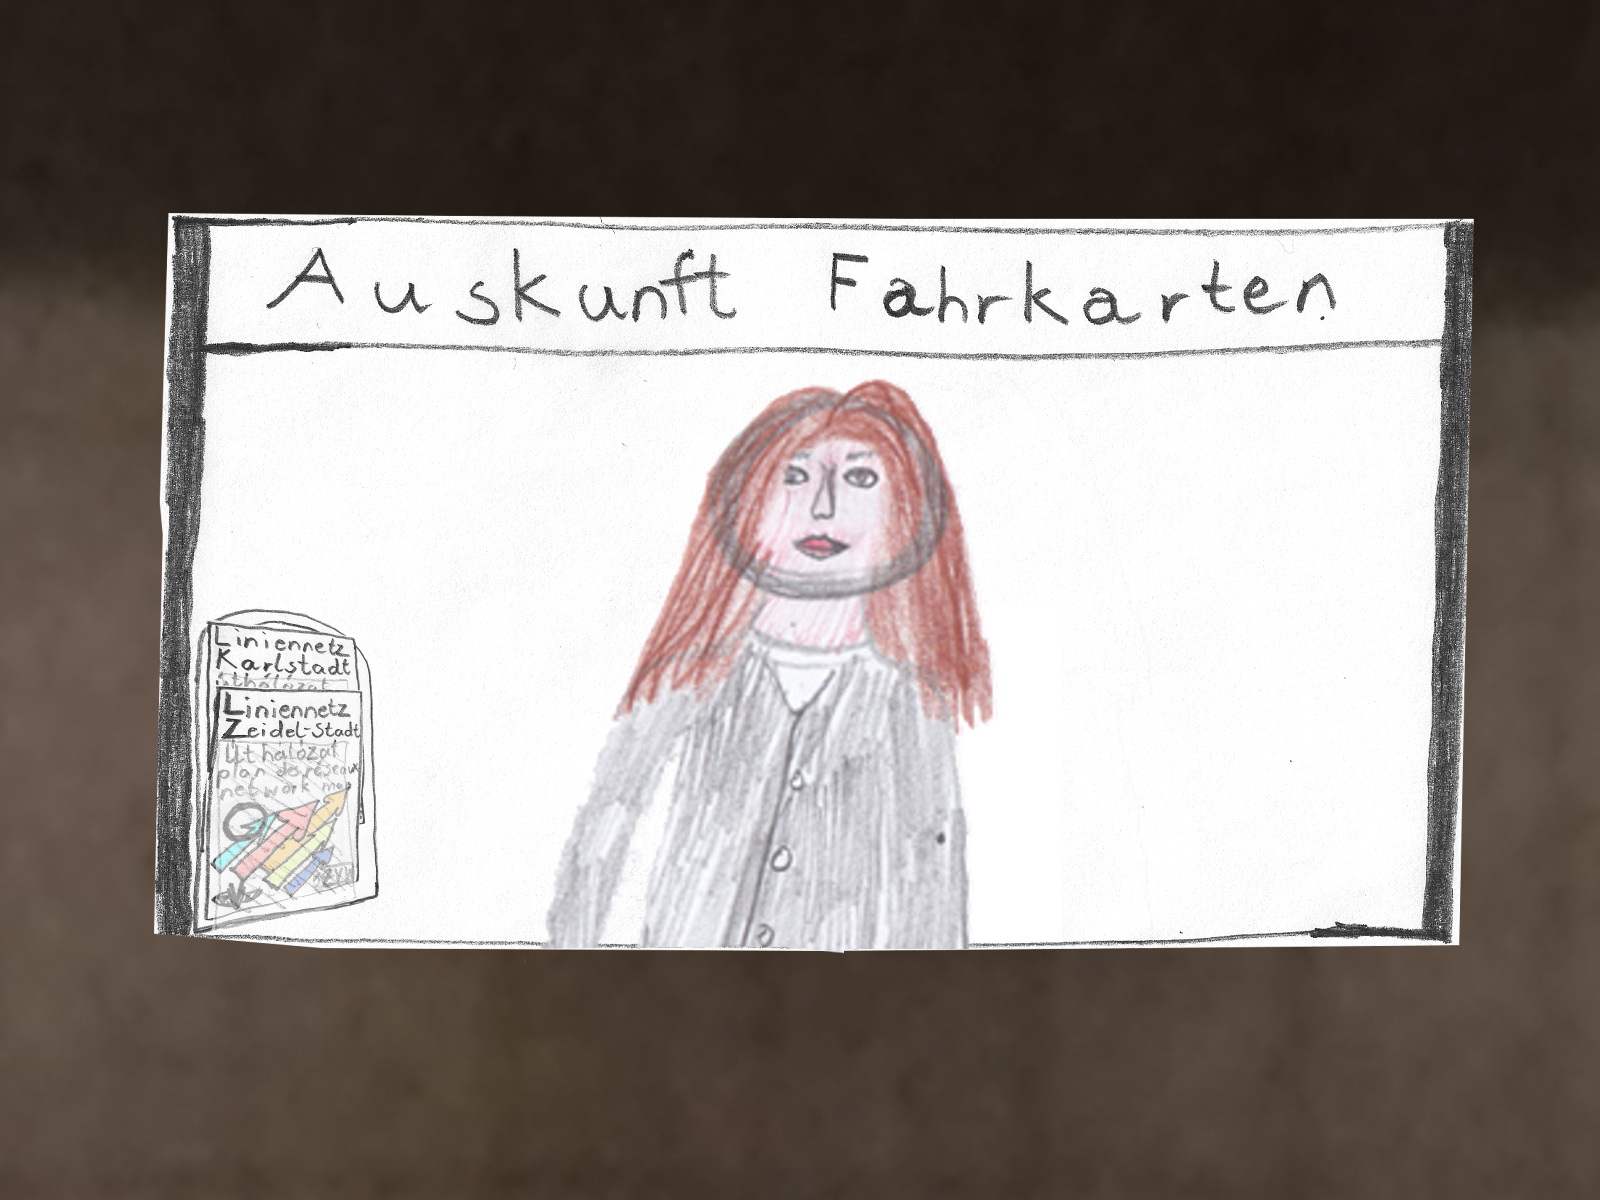 Auskunft Fahrkarten
Liniennetz
Karlstadt
úthálózat
Liniennetz
Zeidel-Stadt
Úthálózat
plan de réseaux
network map